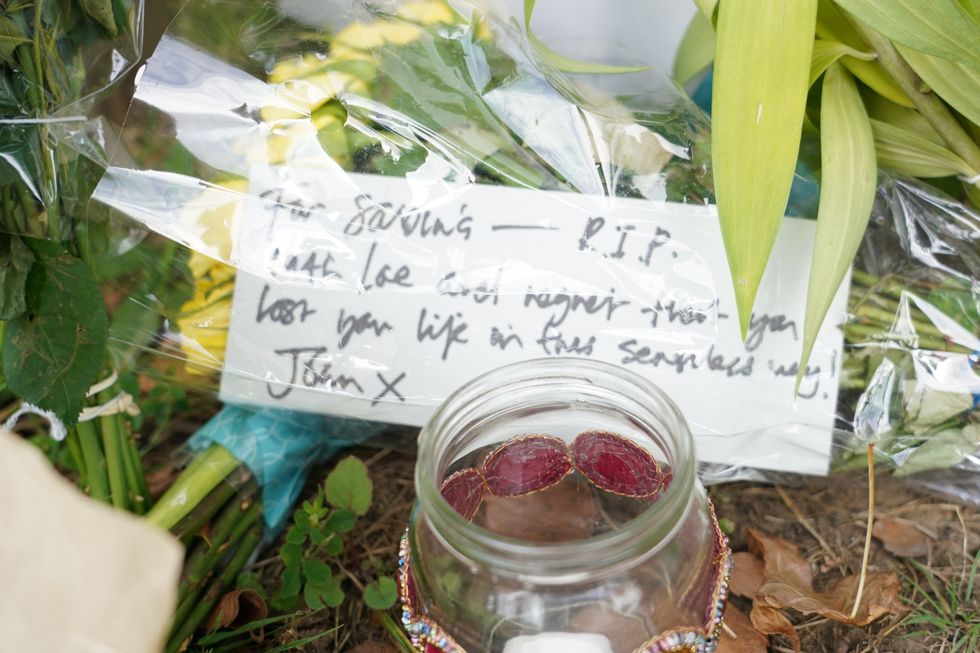 For Sabina's — R.I.P.
with love and regret that you
lost your life in this senseless way!
Joan X